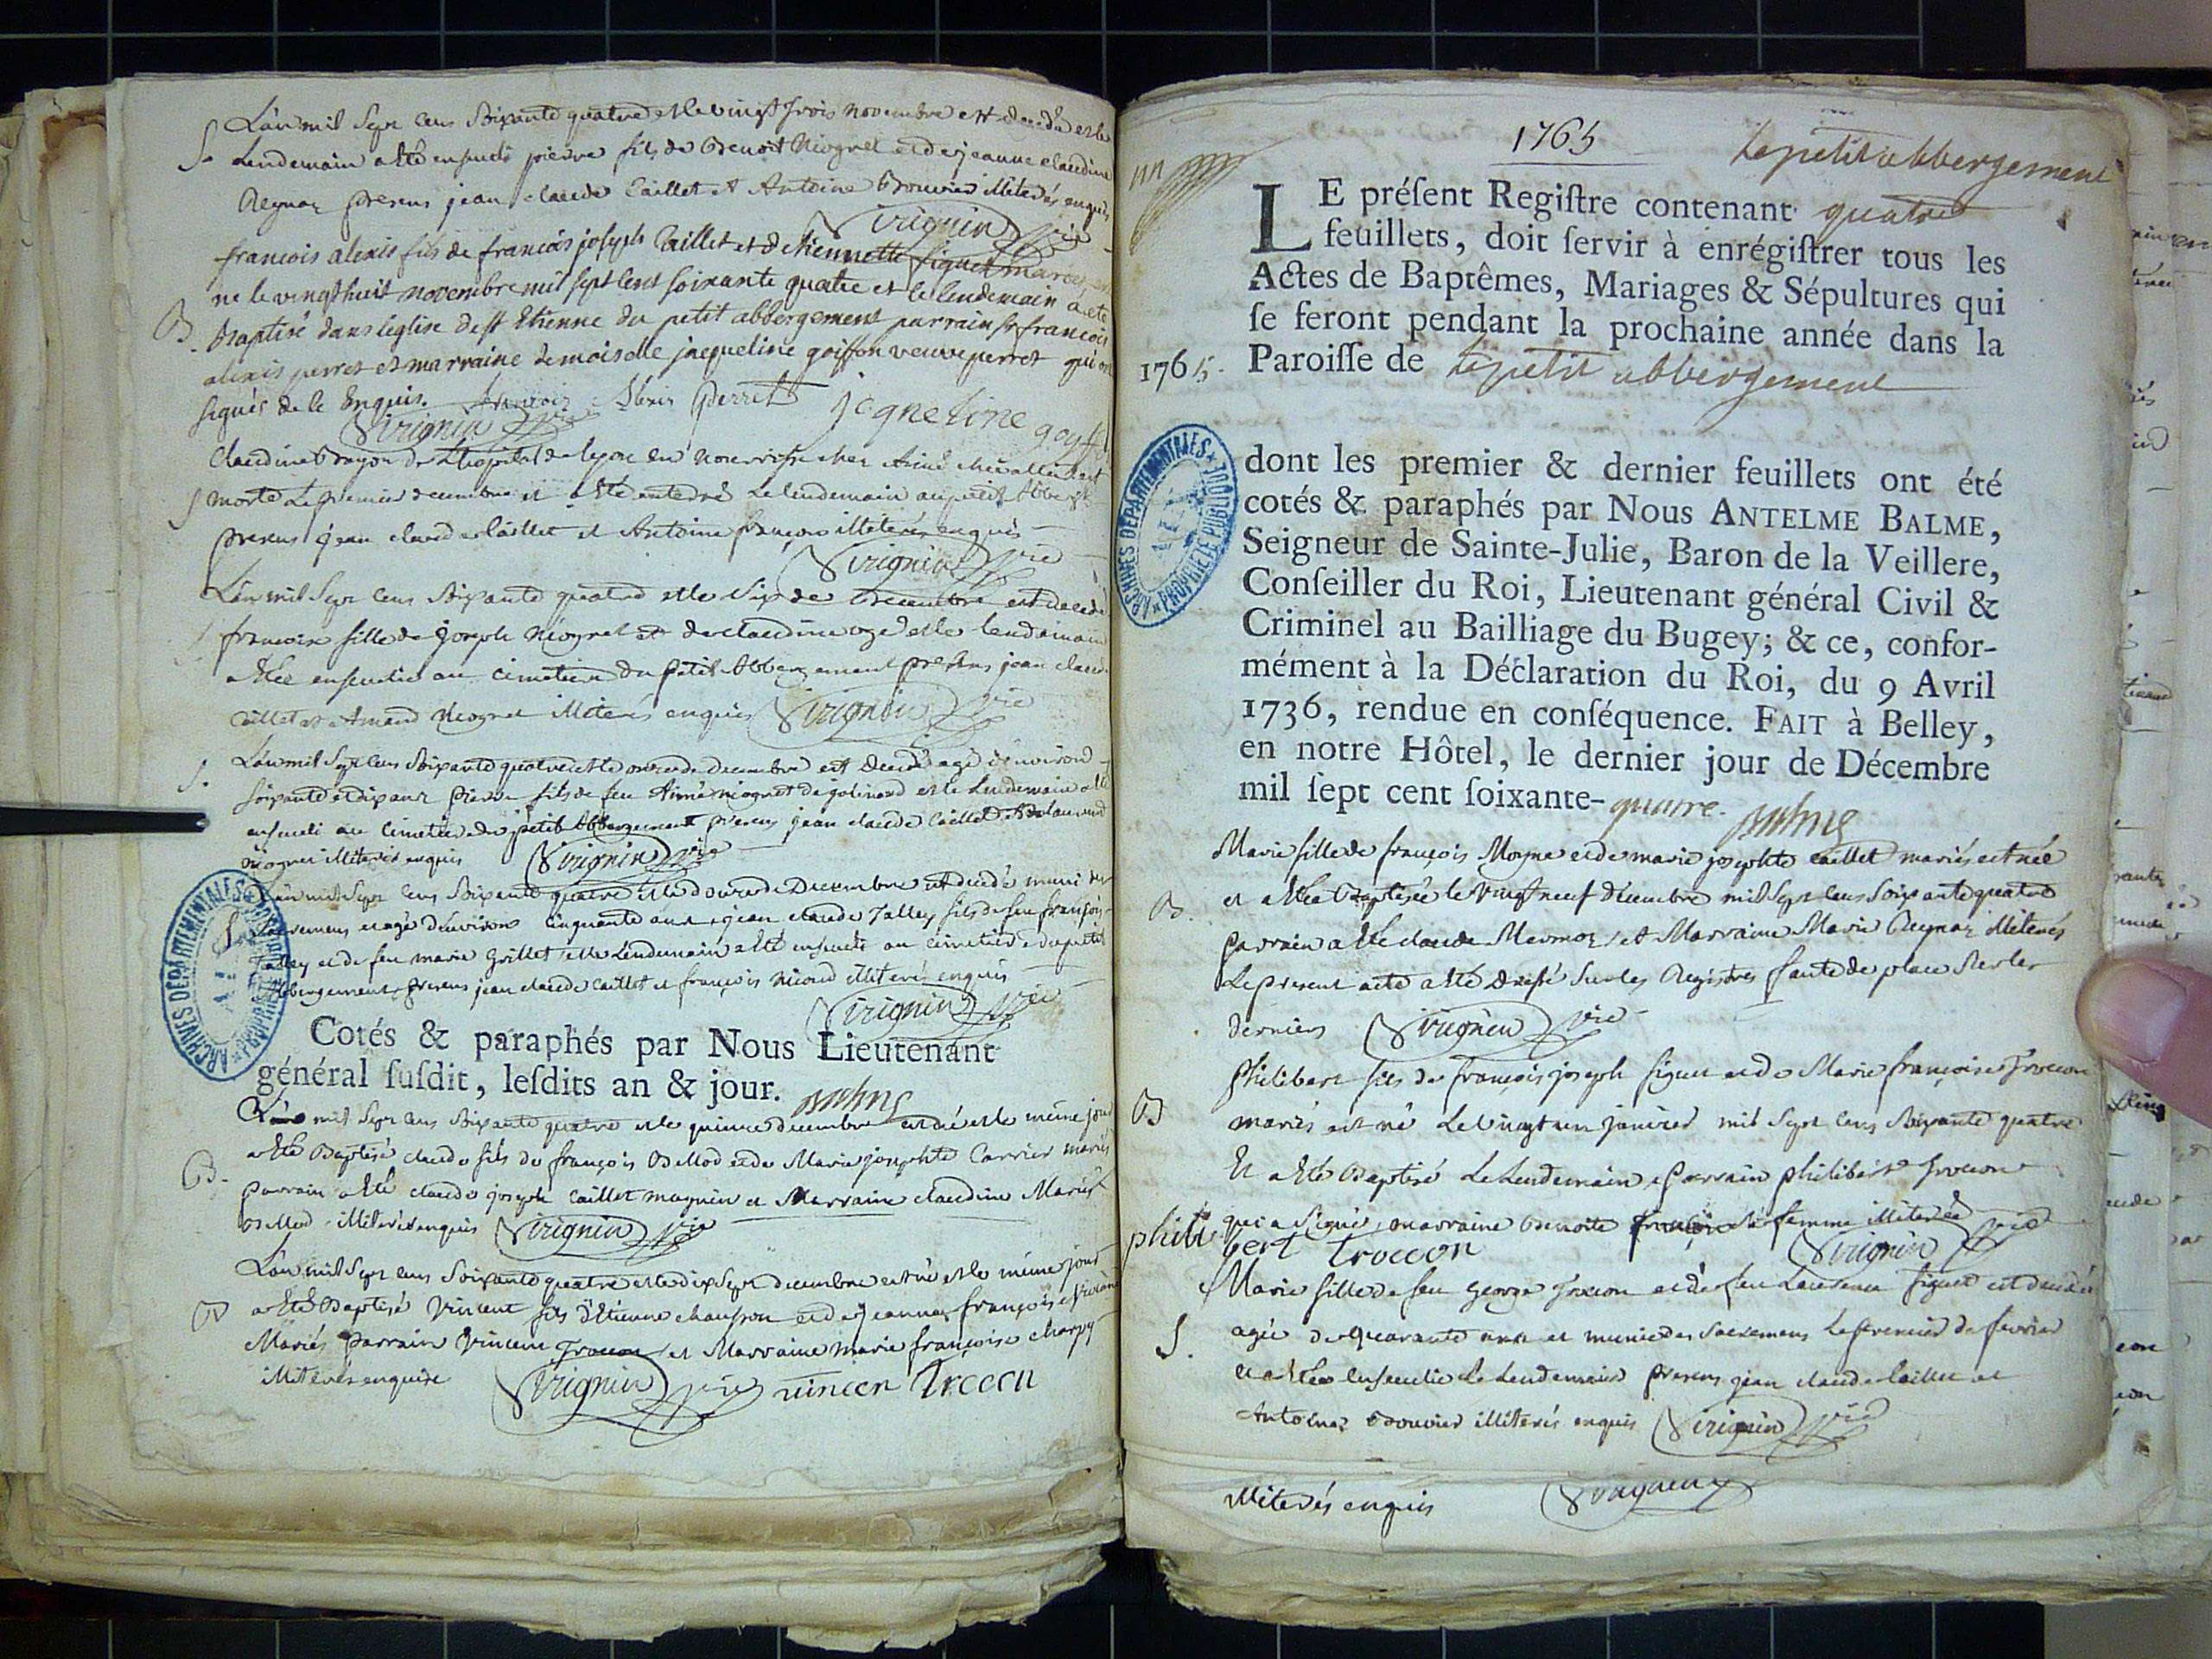 L'an mil Sept cens Soixante quatre et le vingt trois novembre est decedé et le
S. Lendemain a eté enseveli pierre fils de Benoit Niogret et de jeanne claudine
Reynaz presens jean claude Caillet et Antoine Brouvier illiterés enquis
Virignin vic
francois alexis fils de francois joseph Caillet et d'etiennette figuet mariés
né le vingt huit novembre mil sept cent soixante quatre et le lendemain a eté
B. Baptisé dans leglise de st Etienne du petit abbergement parrain sr francois
alexis perret et marraine demoiselle jacqueline goiffon veuve perret qui ont
signés de ce Enquis. francois Alexis Perret jacqueline goyff
Virignin vic
Claudine de L'hopital de lyon en nourrisse chez Aimé est
S morte Le premier decembre et a eté enterré Le lendemain au petit Abberg
presens jean claude Caillet et Antoine françois illiterés enquis
Virignin vic
L'an mil Sept cens Soixante quatre et le Six de Decembre est decedé
S. francoise fille de Joseph Niogret et de claudine et le lendemain
a etée ensevelie au cimetiere du petit Abbergement presens jean claude
Caillet et Amand Niogret illiterés enquis Virignin vic
S. L'an mil Sept cens Soixante quatre et le onze de decembre est decedé agé d'environ
soixante et dix ans pierre fils de feu Aimé niogret de et le Lendemain a eté
enseveli au cimetiere du petit Abbergement presens jean claude Caillet et
niogret illiterés enquis Virignin vic
L'an mil Sept cens Soixante quatre et le douze de Decembre est decedé muni des
S Sacremens et agé d'environ cinquante ans jean claude Talley fils de feu françois
Talley et de feu marie Grillet et le Lendemain a eté enseveli au cimetiere du petit
Abbergement presens jean claude Caillet et françois nicoud illiterés enquis
Virignin vic
Cotés & paraphés par Nous Lieutenant
général susdit, lesdits an & jour. Balme
L'an mil Sept cens Soixante quatre et le quinze decembre est né et le même jour
B. a eté Baptisé claude fils de françois Billiod et de Marie josephte Carrier mariés
parrain a eté claude joseph Caillet et Marraine claudine Marie
illiterés enquis Virignin vic
L'an mil Sept cens Soixante quatre et le dix Sept decembre est né et le même jour
B a eté Baptisé Vincent fils d'Etienne chausson et de jeanne françoise
Mariés parrain Vincent Troccon et Marraine marie françoise charpy
illiterés enquise Virignin vic vincen trocon
1765
Le petit abbergement
LE présent Registre contenant quatre
feuillets, doit servir à enrégistrer tous les
Actes de Baptêmes, Mariages & Sépultures qui
se feront pendant la prochaine année dans la
1765. Paroisse de Le petit abbergement
dont les premier & dernier feuillets ont été
cotés & paraphés par Nous ANTELME BALME,
Seigneur de Sainte-Julie, Baron de la Veillere,
Conseiller du Roi, Lieutenant général Civil &
Criminel au Bailliage du Bugey; & ce, confor-
mément à la Déclaration du Roi, du 9 Avril
1736, rendue en conséquence. FAIT à Belley,
en notre Hôtel, le dernier jour de Décembre
mil sept cent soixante-quatre. Balme
Marie fille de françois Moyne et de marie josephte caillet mariés est née
B. et a etée Baptisée le vingt neuf décembre mil Sept cens Soixante quatre
parrain a eté claude Marmoz et Marraine Marie Reynaz illiterés
Le present acte a eté dressé Sur les Registres faute de place Sur les
derniers Virignin vic
Philibert fils de françois joseph figuet et de Marie françoise Troccon
B mariés est né Le vingt un janvier mil Sept cens Soixante quatre
Et a eté Baptisé Le Lendemain parrain philibert Troccon
qui a Signé, marraine Benoite sa femme illiterée
phili bert troccon Virignin vic
Marie fille de feu George Troccon et de feu Laurence figuet est decedée
S. agée de quarante ans et munie des Sacremens Le premier de fevrier
et a etée ensevelie Le Lendemain presens jean claude Caillet et
Antoine Brouvier illiterés enquis Virignin vic
illiterés enquis Virignin
ARCHIVES DÉPARTEMENTALES * PROPRIÉTÉ PUBLIQUE *
AIN